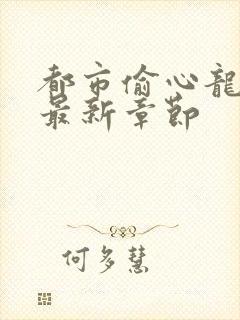 都市偷心龍
最新章節
何多慧